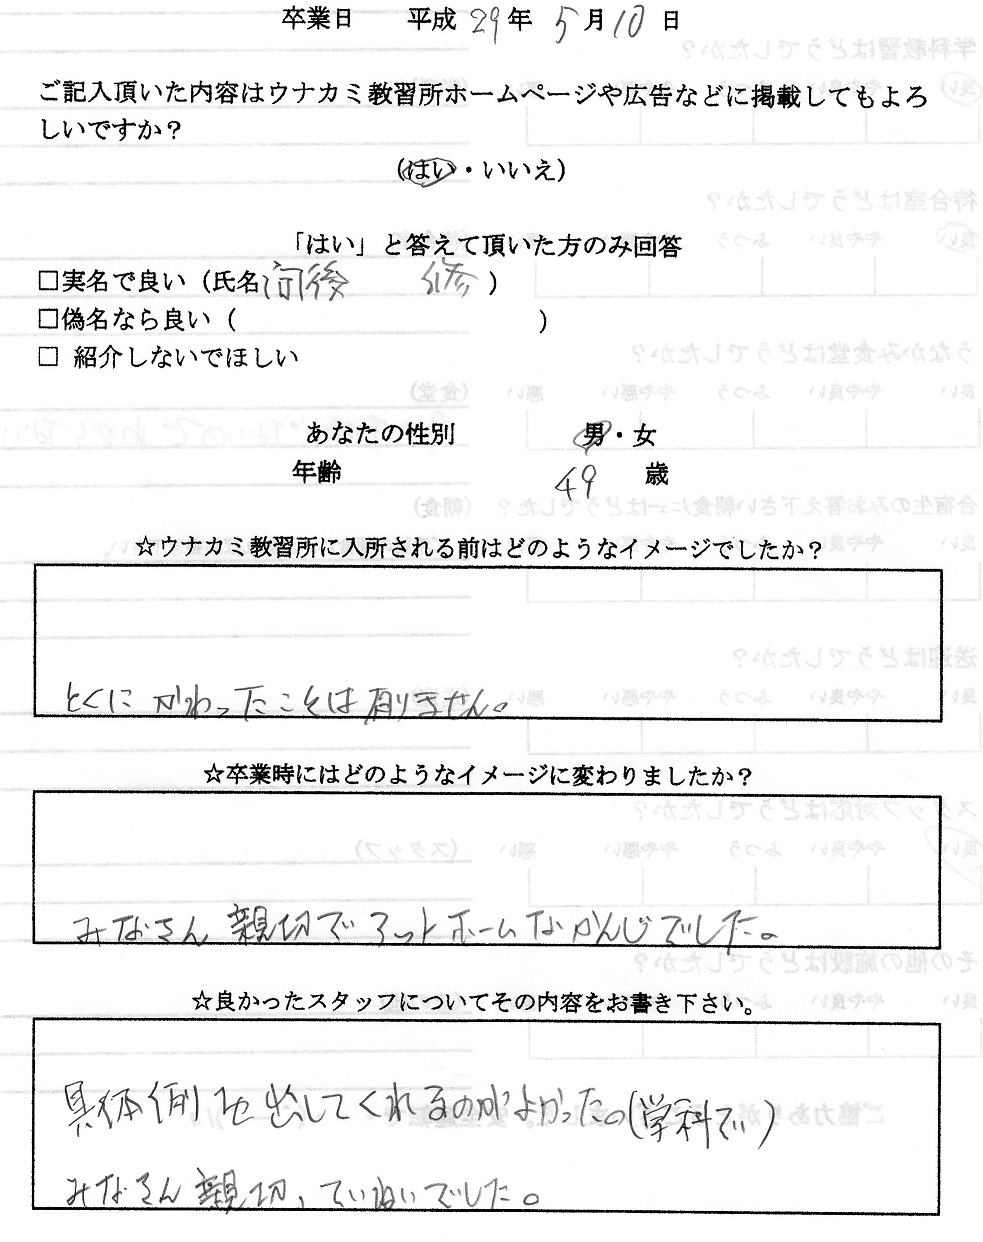 卒業日 平成 29年 5月10日
ご記入頂いた内容はウナカミ教習所ホームページや広告などに掲載してもよろ
しいですか？
(はい・いいえ)
「はい」と答えて頂いた方のみ回答
□実名で良い（氏名向後 修）
□偽名なら良い（ ）
□ 紹介しないでほしい
あなたの性別 男・女
年齢 49 歳
☆ウナカミ教習所に入所される前はどのようなイメージでしたか？
とくにかわったことは有りません。
☆卒業時にはどのようなイメージに変わりましたか？
みなさん親切でアットホームなかんじでした。
☆良かったスタッフについてその内容をお書き下さい。
具体例を出してくれるのがよかった。(学科で)
みなさん親切、ていねいでした。